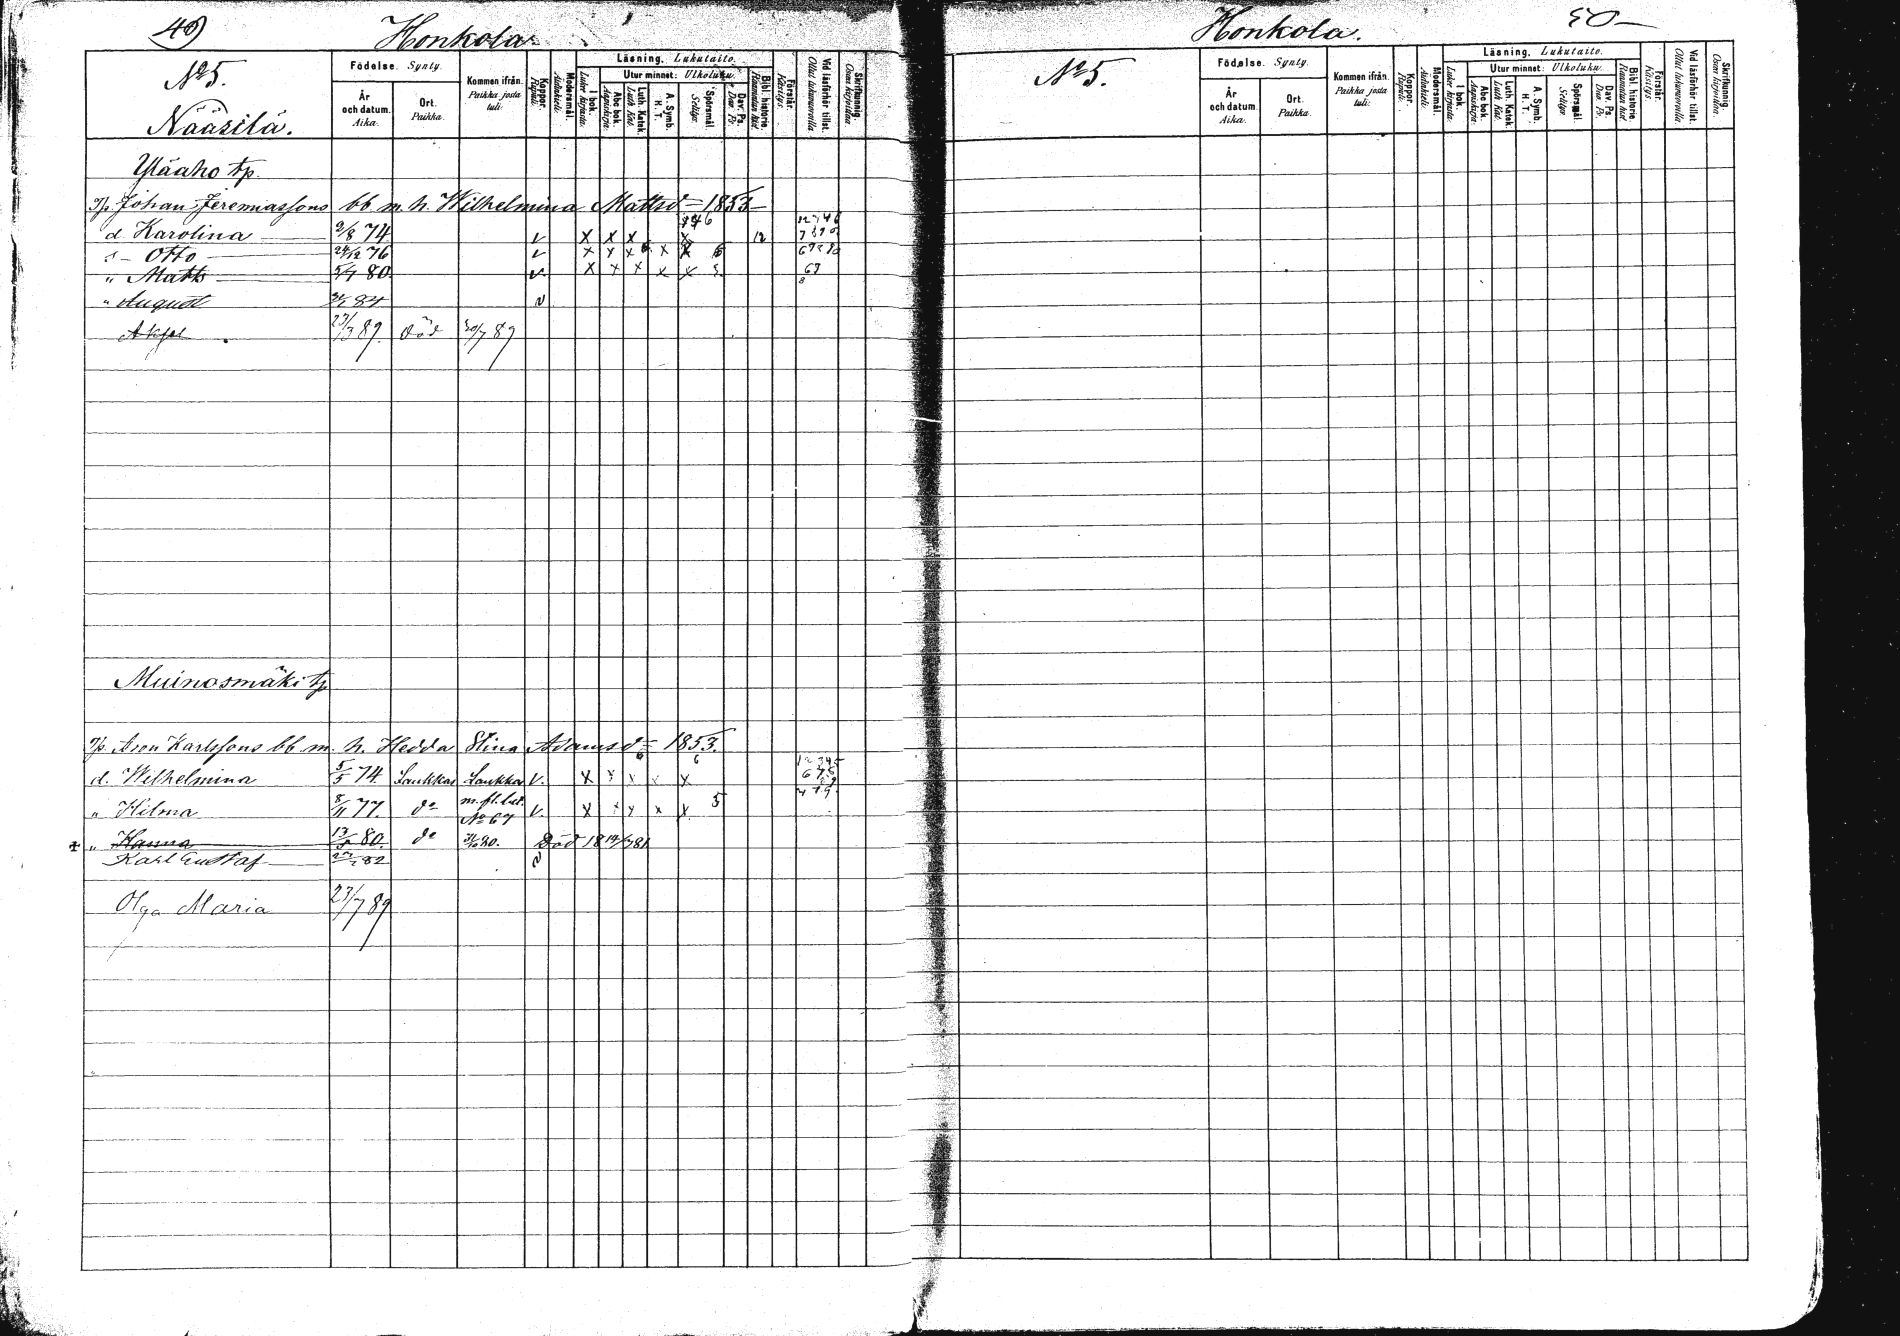 49
Honkola.
No 5.
Nääsilä.
Födelse. Synty.
År och datum. Aika.
Ort. Paikka.
Kommen ifrån. Paikka josta tuli:
Koppor. Rupuli.
Modersmål. Äidinkieli.
Läsning. Lukutaito.
I bok. Lukee kirjasta.
Utur minnet: Ulkoluku.
Abc bok. Aapiskirja.
Luth. Katek. Luth. Kat.
A. Symb. H. T.
Spörsmål. Selitys.
Dav. Ps. Dav. Ps.
Bibl. historie. Raamatun hist.
Förstår. Käsitys.
Vid läsförhör tillst. Ollut lukuvuorolla.
Skrifkunnig. Osaa kirjoittaa.
Yläaho tp.
Tp. Johan Jeremiassons bb m. h. Wilhelmina Mattsd = 1853
d. Karolina 2/8 74 v x x x x 12
s - Otto 24/12 76 v x x x x x
" Matts 5/7 80 v x x x x x
" August 84 v
Aksel 23/3 89. död 20/7 89
Muinosmäki tp
Tp. Aron Karlssons bb m. h. Hedda Stina Adamsd = 1853.
d. Wilhelmina 5/5 74 Laukkas Laukka v. x x x x x
" Hilma 8/11 77. do m. fl. bet. No 67 v. x x x x x 5
+ " Hanna 80. do Död
Karl Gustaf 82
Olga Maria 23/7 89
Honkola.
50
No 5.
Födelse. Synty.
År och datum. Aika.
Ort. Paikka.
Kommen ifrån. Paikka josta tuli:
Koppor. Rupuli.
Modersmål. Äidinkieli.
Läsning. Lukutaito.
I bok. Lukee kirjasta.
Utur minnet: Ulkoluku.
Abc bok. Aapiskirja.
Luth. Katek. Luth. Kat.
A. Symb. H. T.
Spörsmål. Selitys.
Dav. Ps. Dav. Ps.
Bibl. historie. Raamatun hist.
Förstår. Käsitys.
Vid läsförhör tillst. Ollut lukuvuorolla.
Skrifkunnig. Osaa kirjoittaa.